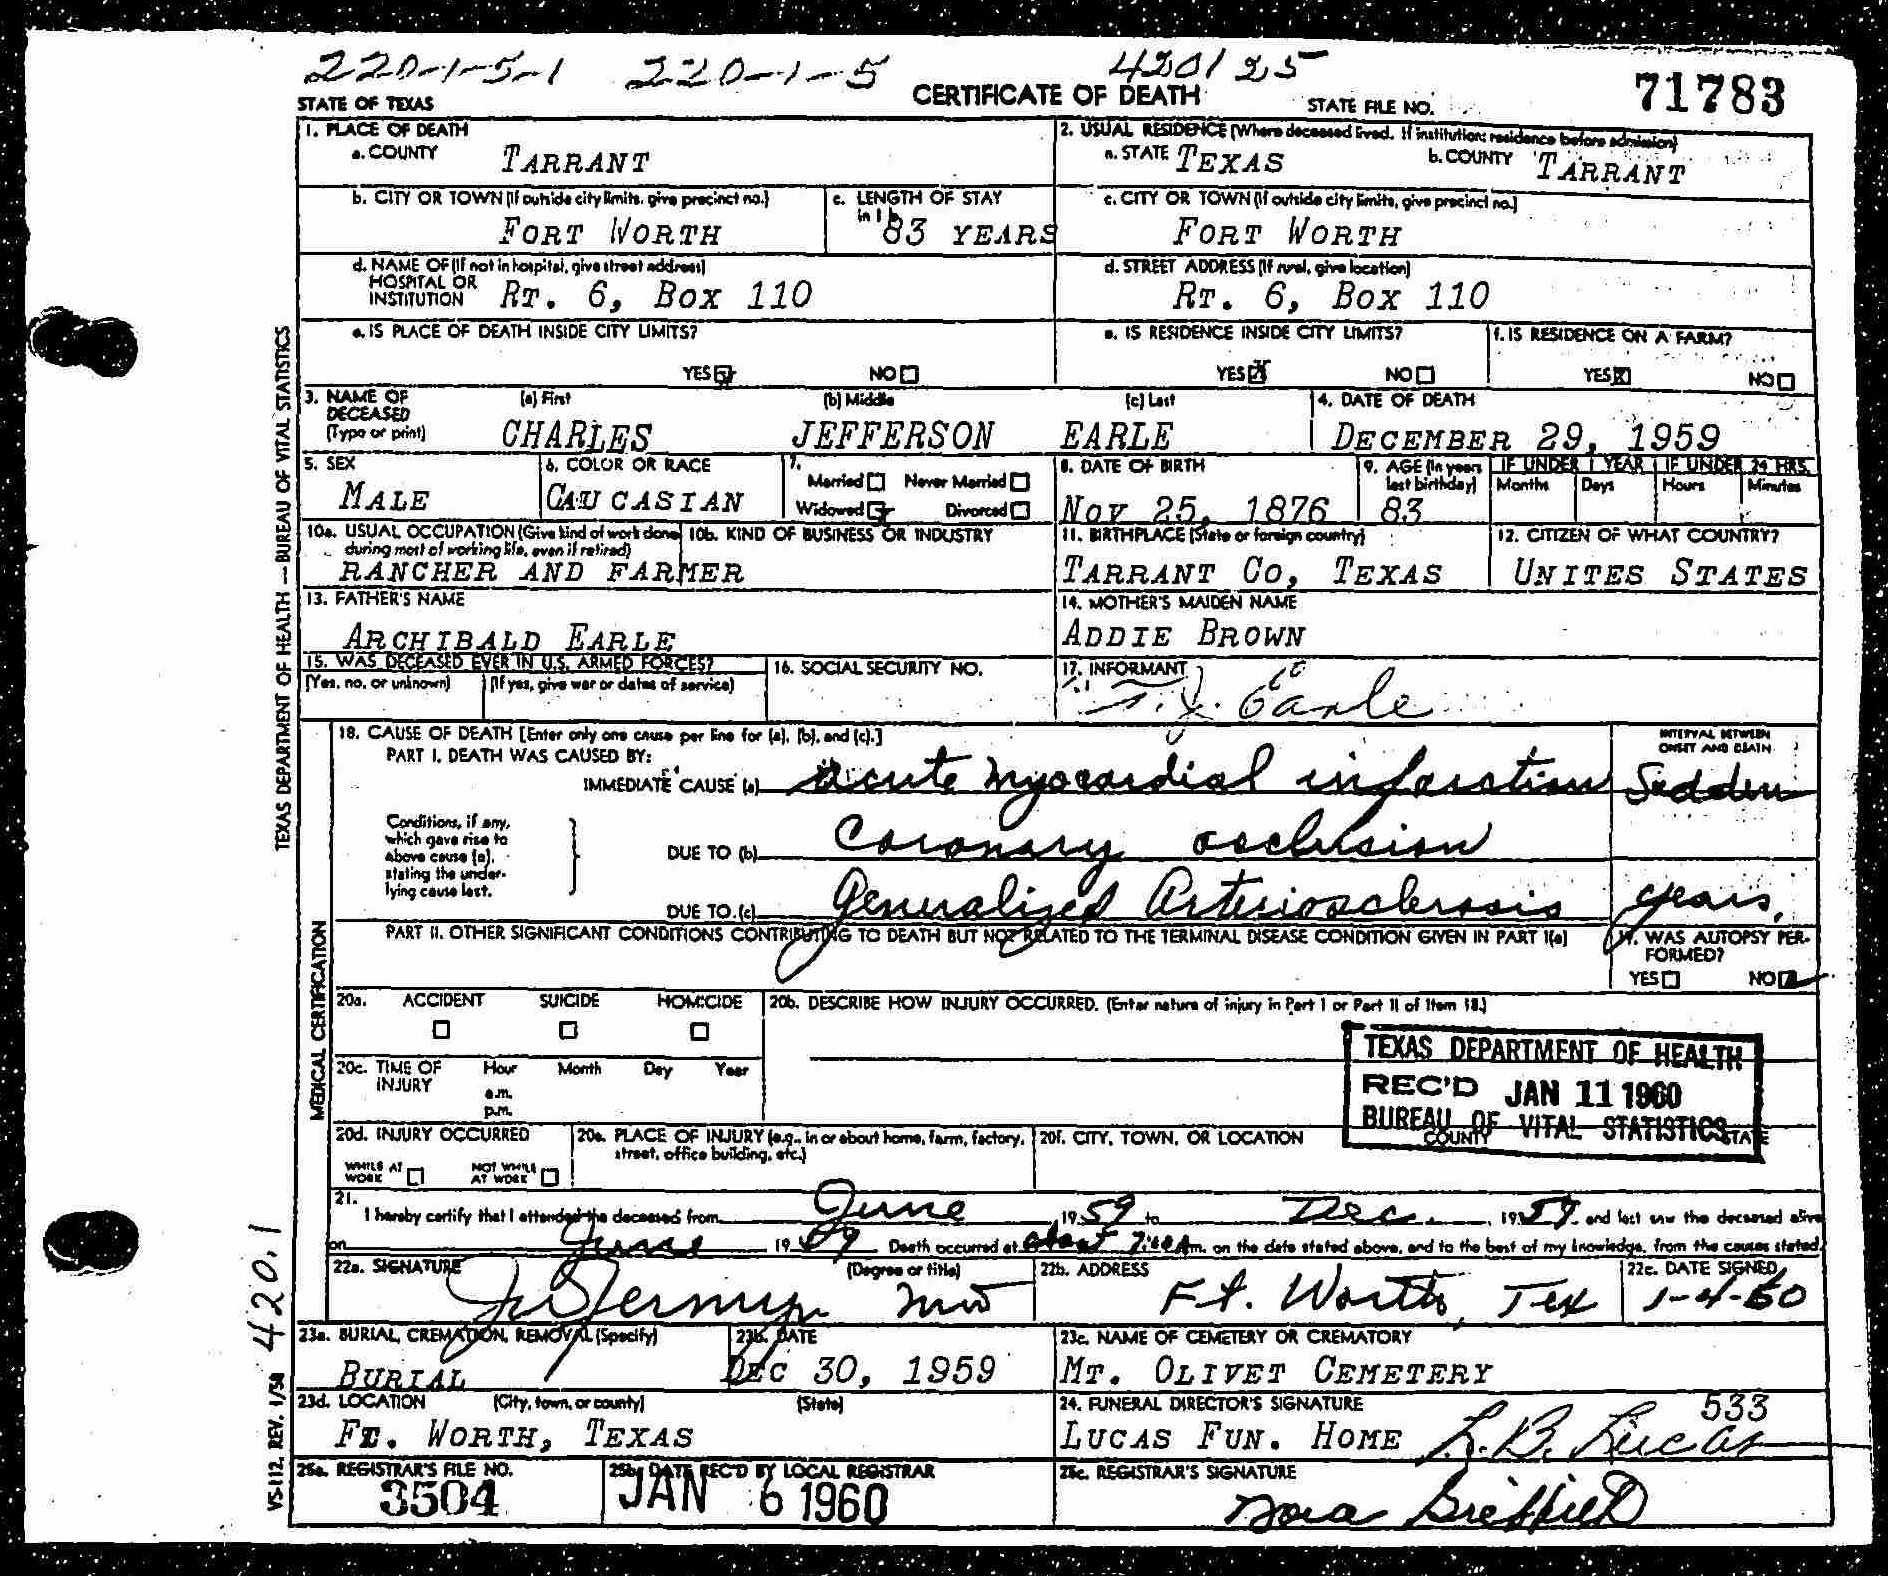 220-1-5-1 220-1-5 420125
STATE OF TEXAS CERTIFICATE OF DEATH STATE FILE NO. 71783
1. PLACE OF DEATH
a. COUNTY TARRANT
2. USUAL RESIDENCE (Where deceased lived. If institution: residence before admission)
a. STATE TEXAS b. COUNTY TARRANT
b. CITY OR TOWN (If outside city limits, give precinct no.) FORT WORTH
c. LENGTH OF STAY in 1 b 83 YEARS
c. CITY OR TOWN (If outside city limits, give precinct no.) FORT WORTH
d. NAME OF (If not in hospital, give street address)
HOSPITAL OR
INSTITUTION RT. 6, BOX 110
d. STREET ADDRESS (If rural, give location)
RT. 6, BOX 110
e. IS PLACE OF DEATH INSIDE CITY LIMITS?
YES NO
e. IS RESIDENCE INSIDE CITY LIMITS?
YES X NO
f. IS RESIDENCE ON A FARM?
YES X NO
3. NAME OF DECEASED (Type or print)
(a) First (b) Middle (c) Last
CHARLES JEFFERSON EARLE
4. DATE OF DEATH
DECEMBER 29, 1959
5. SEX
MALE
6. COLOR OR RACE
CAUCASIAN
7. Married Never Married
Widowed Divorced
8. DATE OF BIRTH
NOV 25, 1876
9. AGE (In years last birthday)
83
IF UNDER 1 YEAR IF UNDER 24 HRS.
Months Days Hours Minutes
10a. USUAL OCCUPATION (Give kind of work done during most of working life, even if retired)
RANCHER AND FARMER
10b. KIND OF BUSINESS OR INDUSTRY
11. BIRTHPLACE (State or foreign country)
TARRANT CO, TEXAS
12. CITIZEN OF WHAT COUNTRY?
UNITES STATES
13. FATHER'S NAME
ARCHIBALD EARLE
14. MOTHER'S MAIDEN NAME
ADDIE BROWN
15. WAS DECEASED EVER IN U.S. ARMED FORCES?
(Yes, no, or unknown) (If yes, give war or dates of service)
16. SOCIAL SECURITY NO.
17. INFORMANT
T. J. Earle
18. CAUSE OF DEATH [Enter only one cause per line for (a), (b), and (c).]
PART I. DEATH WAS CAUSED BY:
INTERVAL BETWEEN ONSET AND DEATH
IMMEDIATE CAUSE (a) acute myocardial infarction Sudden
Conditions, if any, which gave rise to above cause (a), stating the underlying cause last.
DUE TO (b) Coronary occlusion
DUE TO (c) Generalized Arteriosclerosis years,
PART II. OTHER SIGNIFICANT CONDITIONS CONTRIBUTING TO DEATH BUT NOT RELATED TO THE TERMINAL DISEASE CONDITION GIVEN IN PART I(a)
19. WAS AUTOPSY PERFORMED?
YES NO
20a. ACCIDENT SUICIDE HOMICIDE
20b. DESCRIBE HOW INJURY OCCURRED. (Enter nature of injury in Part I or Part II of Item 18.)
20c. TIME OF INJURY
Hour Month Day Year
a.m.
p.m.
TEXAS DEPARTMENT OF HEALTH
REC'D JAN 11 1960
BUREAU OF VITAL STATISTICS
20d. INJURY OCCURRED
WHILE AT WORK NOT WHILE AT WORK
20e. PLACE OF INJURY (e.g., in or about home, farm, factory, street, office building, etc.)
20f. CITY, TOWN, OR LOCATION COUNTY STATE
21.
I hereby certify that I attended the deceased from June 1959 to Dec. 1959 and last saw the deceased alive
on June 1959 Death occurred at about 7:00 A m. on the date stated above, and to the best of my knowledge, from the causes stated.
22a. SIGNATURE (Degree or title)
MD
22b. ADDRESS
Ft. Worth, Tex
22c. DATE SIGNED
1-4-60
23a. BURIAL, CREMATION, REMOVAL (Specify)
BURIAL
23b. DATE
DEC 30, 1959
23c. NAME OF CEMETERY OR CREMATORY
MT. OLIVET CEMETERY
23d. LOCATION (City, town, or county) (State)
FT. WORTH, TEXAS
24. FUNERAL DIRECTOR'S SIGNATURE 533
LUCAS FUN. HOME L. B. Lucas
25a. REGISTRAR'S FILE NO.
3504
25b. DATE REC'D BY LOCAL REGISTRAR
JAN 6 1960
25c. REGISTRAR'S SIGNATURE
Nora
TEXAS DEPARTMENT OF HEALTH — BUREAU OF VITAL STATISTICS
MEDICAL CERTIFICATION
420.1
VS-112, REV. 1/58